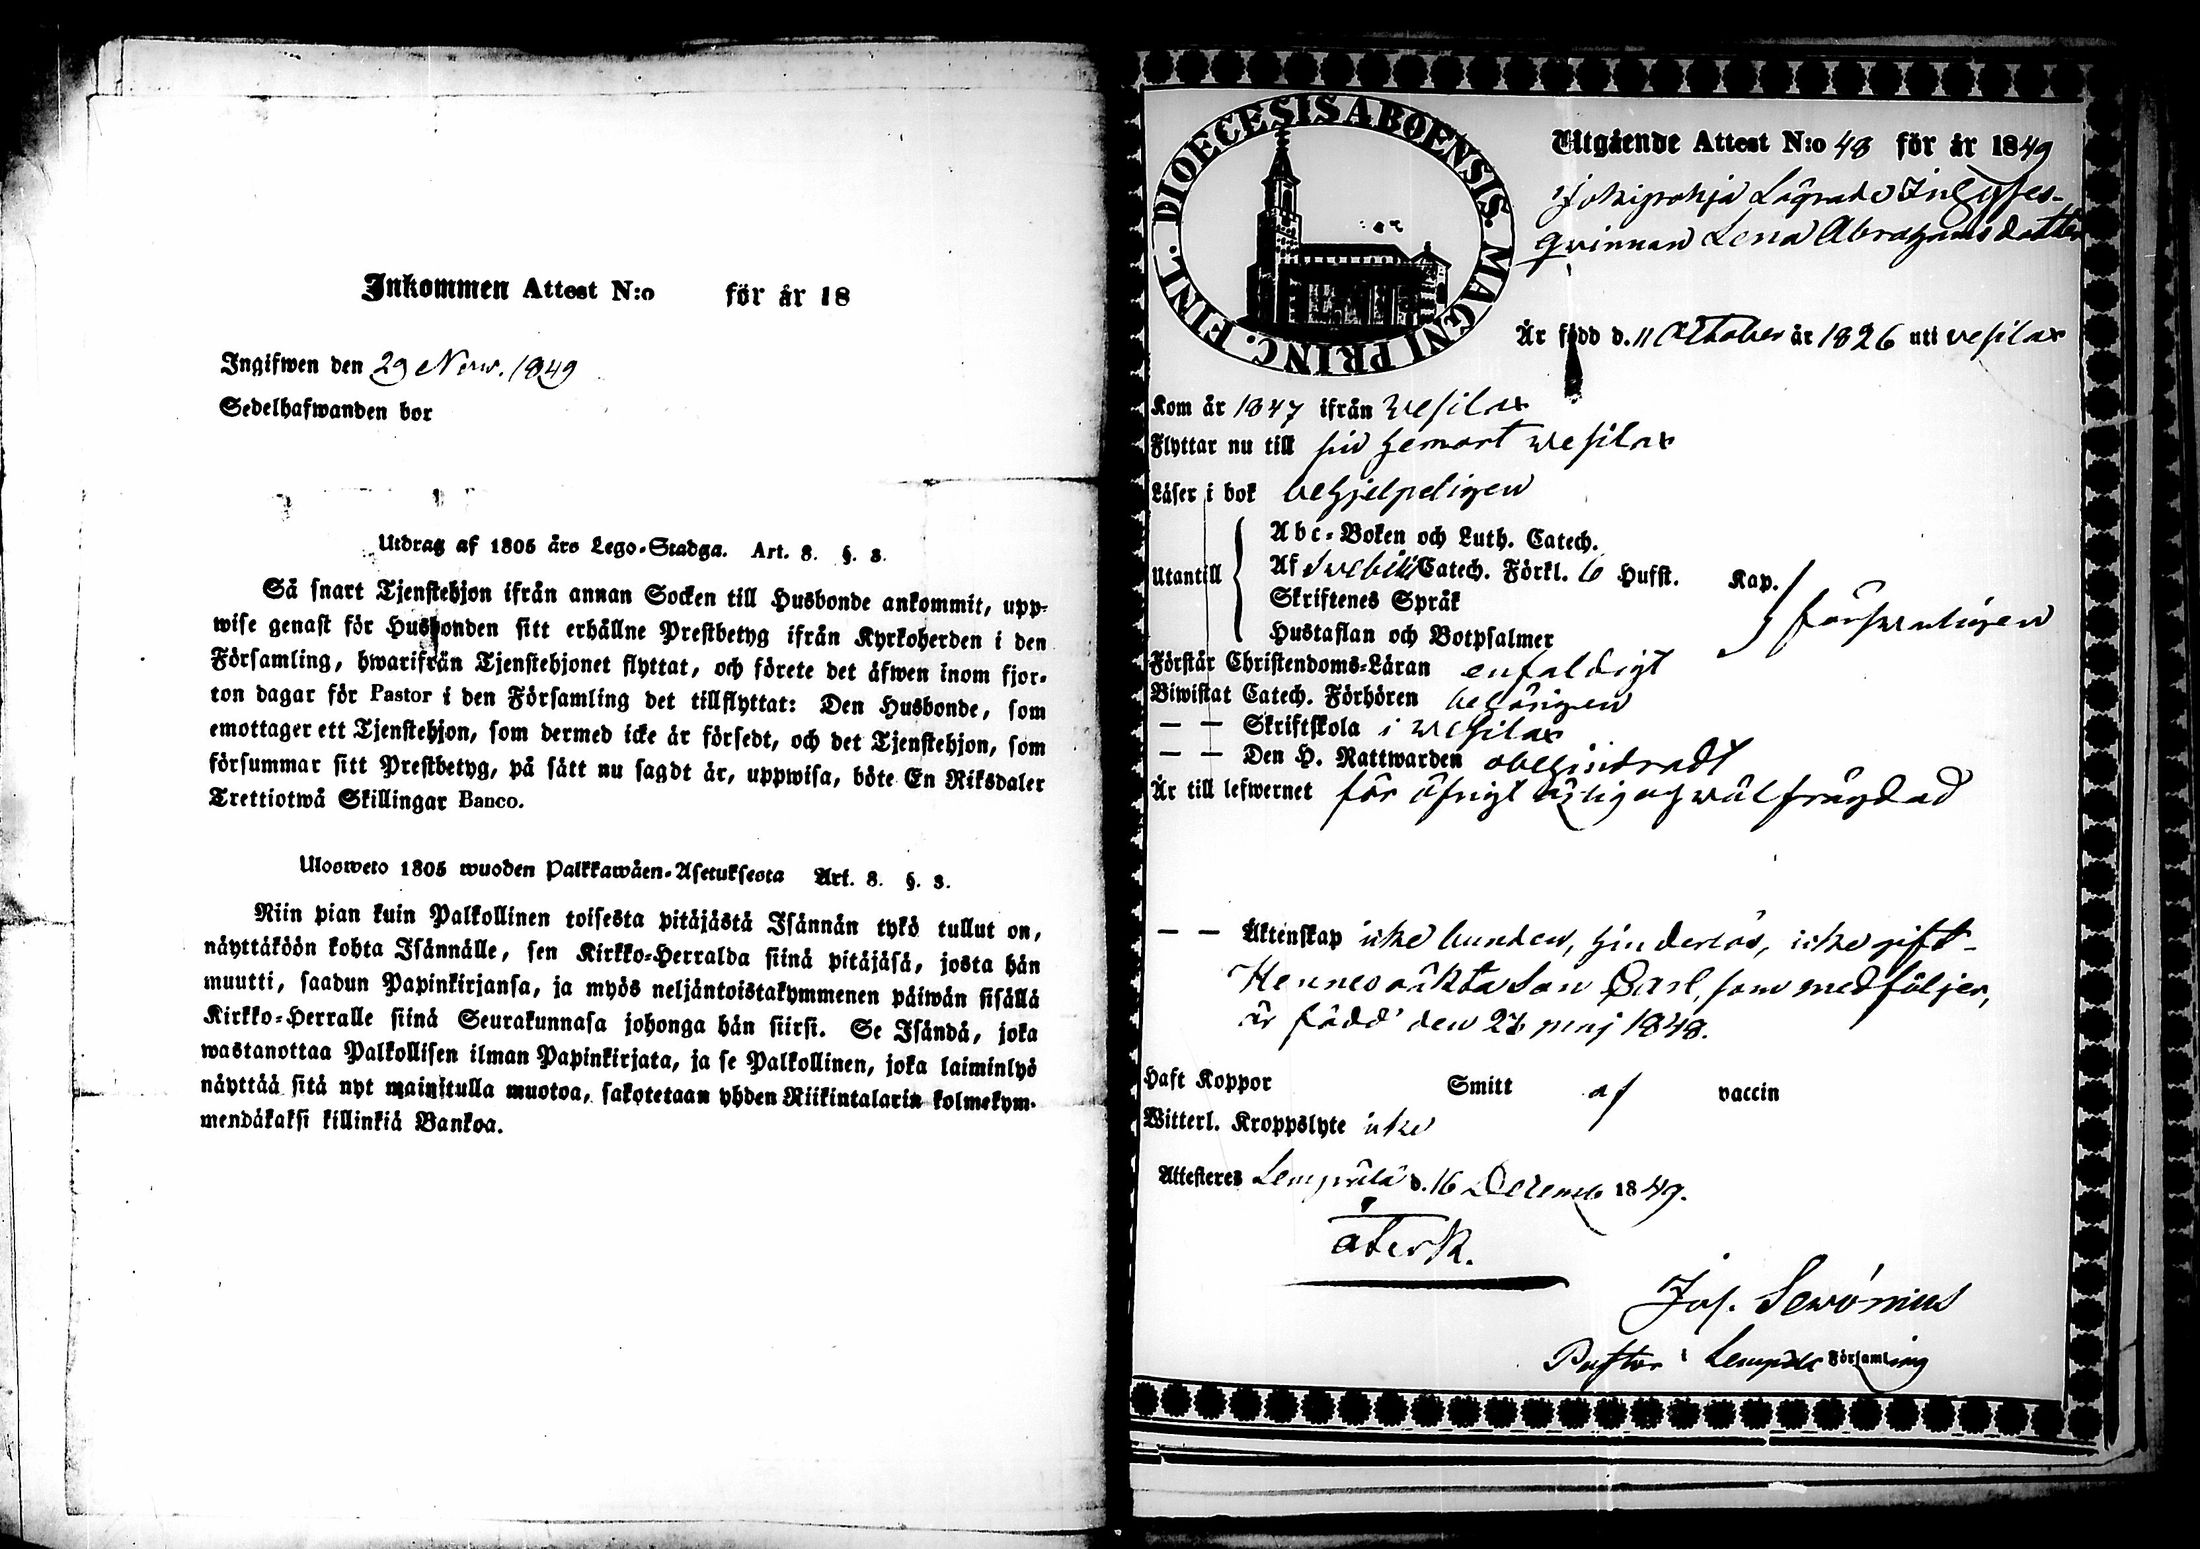 Inkommen Attest N:o för år 18
Ingifwen den 29 Now. 1849
Sedelhafwanden bor
Utdrag af 1805 års Lego-Stadga. Art. 8. §. 3.
Så snart Tjenstehjon ifrån annan Socken till Husbonde ankommit, upp-
wise genast för Husbonden sitt erhållne Prestbetyg ifrån Kyrkoherden i den
Församling, hwarifrån Tjenstehjonet flyttat, och förete det äfwen inom fjor-
ton dagar för Pastor i den Församling det tillflyttat: Den Husbonde, som
emottager ett Tjenstehjon, som dermed icke är försedt, och det Tjenstehjon, som
försummar sitt Prestbetyg, på sätt nu sagdt är, uppwisa, böte En Riksdaler
Trettiotwå Skillingar Banco.
Ulosweto 1805 wuoden Palkkawäen-Asetuksesta Art. 8. §. 3.
Niin pian kuin Palkollinen toisesta pitäjästä Isännän tykö tullut on,
näyttäköön kohta Isännälle, sen Kirkko-Herralda siinä pitäjäsä, josta hän
muutti, saadun Papinkirjansa, ja myös neljäntoistakymmenen päiwän sisällä
Kirkko-Herralle siinä Seurakunnasa johonga hän siirsi. Se Isändä, joka
wastanottaa Palkollisen ilman Papinkirjata, ja se Palkollinen, joka laiminlyö
näyttää sitä nyt mainitulla muotoa, sakotetaan yhden Riikintalarin kolmekym-
mendäkaksi killinkiä Bankoa.
DIOECESIS ABOENSIS. MAGNI PRINC. FINL.
Utgående Attest N:o 48 för år 1849
Jokipohja Lägrade Inhyses-
qvinnan Lena Abrahamsdotter
Är född d. 11 October år 1826 uti Wesilax
Kom år 1847 ifrån Wesilax
Flyttar nu till sin hemort Wesilax
Läser i bok behjelpeligen
Utantill
Abc-Boken och Luth. Catech.
Af Swebilii Catech. Förkl. 6 Hufst. Kap.
Skriftenes Språk
Hustaflan och Botpsalmer
försvarligen
Förstår Christendoms-Läran enfaldigt
Biwistat Catech. Förhören behörigen
— — Skriftskola i Wesilax
— — Den H. Nattwarden obehindradt
Är till lefwernet för öfrigt ärlig och wälfrägdad
— — Äktenskap icke bunden, hinderlös, icke gift-
Hennes oäkta Son Carl, som medföljer,
är född den 26 maj 1848.
Haft Koppor Smitt af vaccin
Witterl. Kroppslyte icke
Attesteres Lempälä d. 16 Decemb 1849.
återk.
Jos. Serónius
Pastor i Lempälä Församling